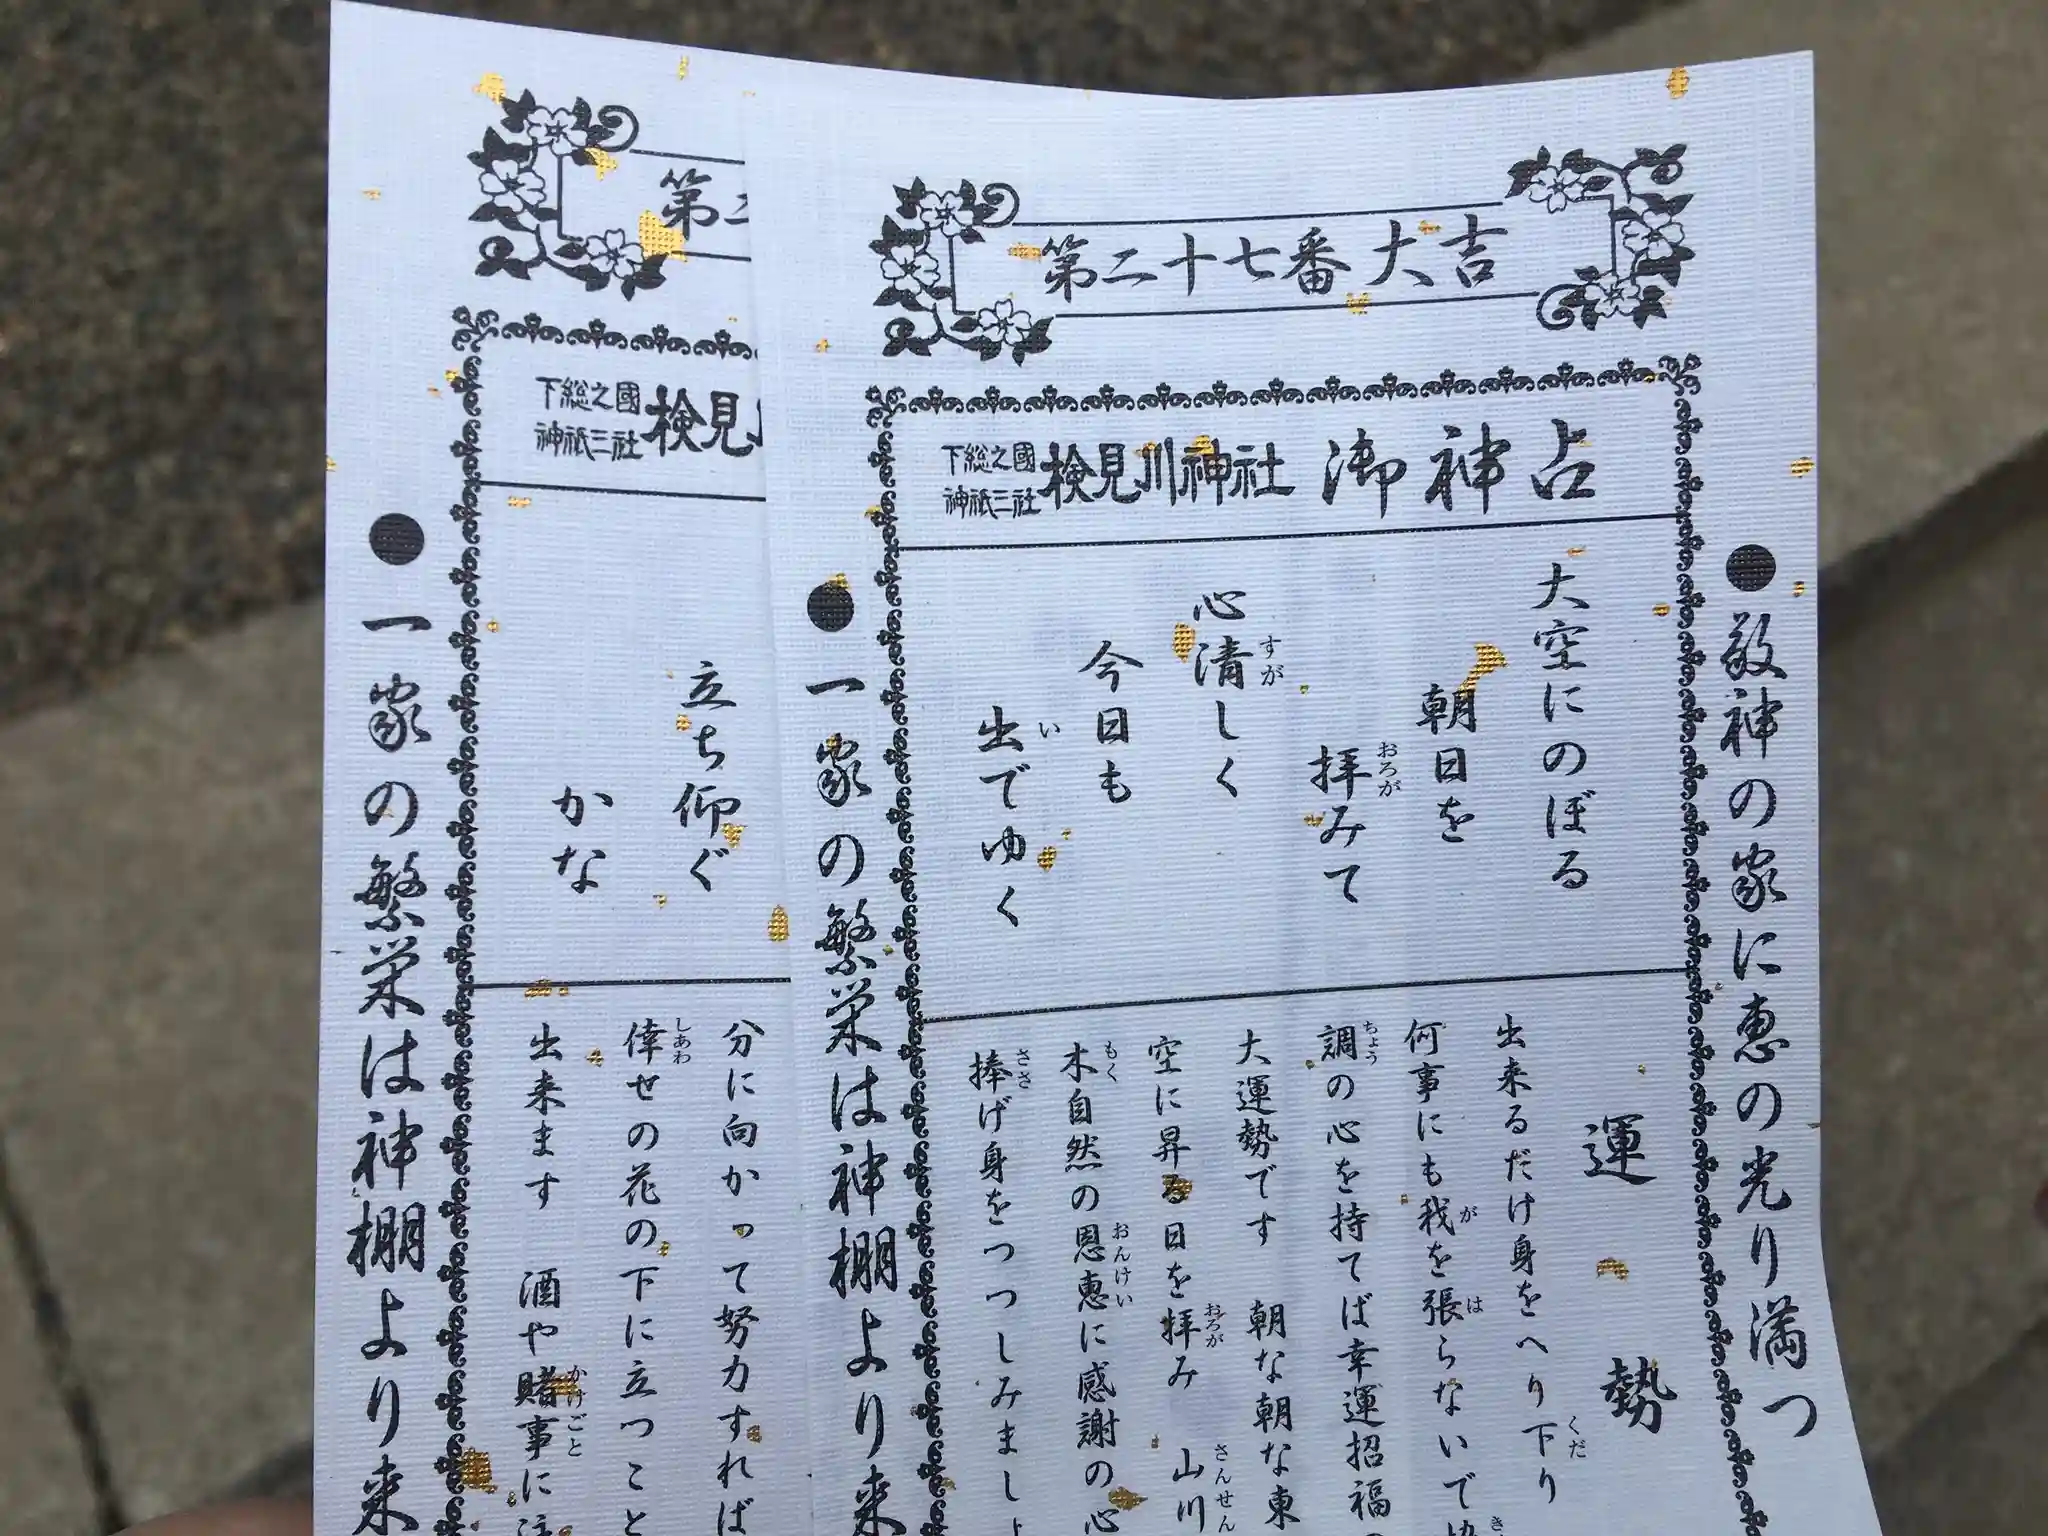 第二十七番 大吉
下総之國
神祇三社
検見川神社 御神占
●敬神の家に恵の光り満つ
大空にのぼる
朝日を
拝みて
おろが
心清しく
すが
今日も
出でゆく
い
運勢
出来るだけ身をへり下り
くだ
何事にも我を張らないで
が
は
調の心を持てば幸運招福
ちょう
大運勢です 朝な朝な東
空に昇る日を拝み 山川
おろが
さんせん
木自然の恩恵に感謝の心
もく
おんけい
捧げ身をつつしみまし
ささ
●一家の繁栄は神棚より来
第
下総之國
神祇三社
検見
立ち仰ぐ
かな
分に向かって努力すれば
倖せの花の下に立つこと
しあわ
出来ます 酒や賭事に
かけごと
●一家の繁栄は神棚より来